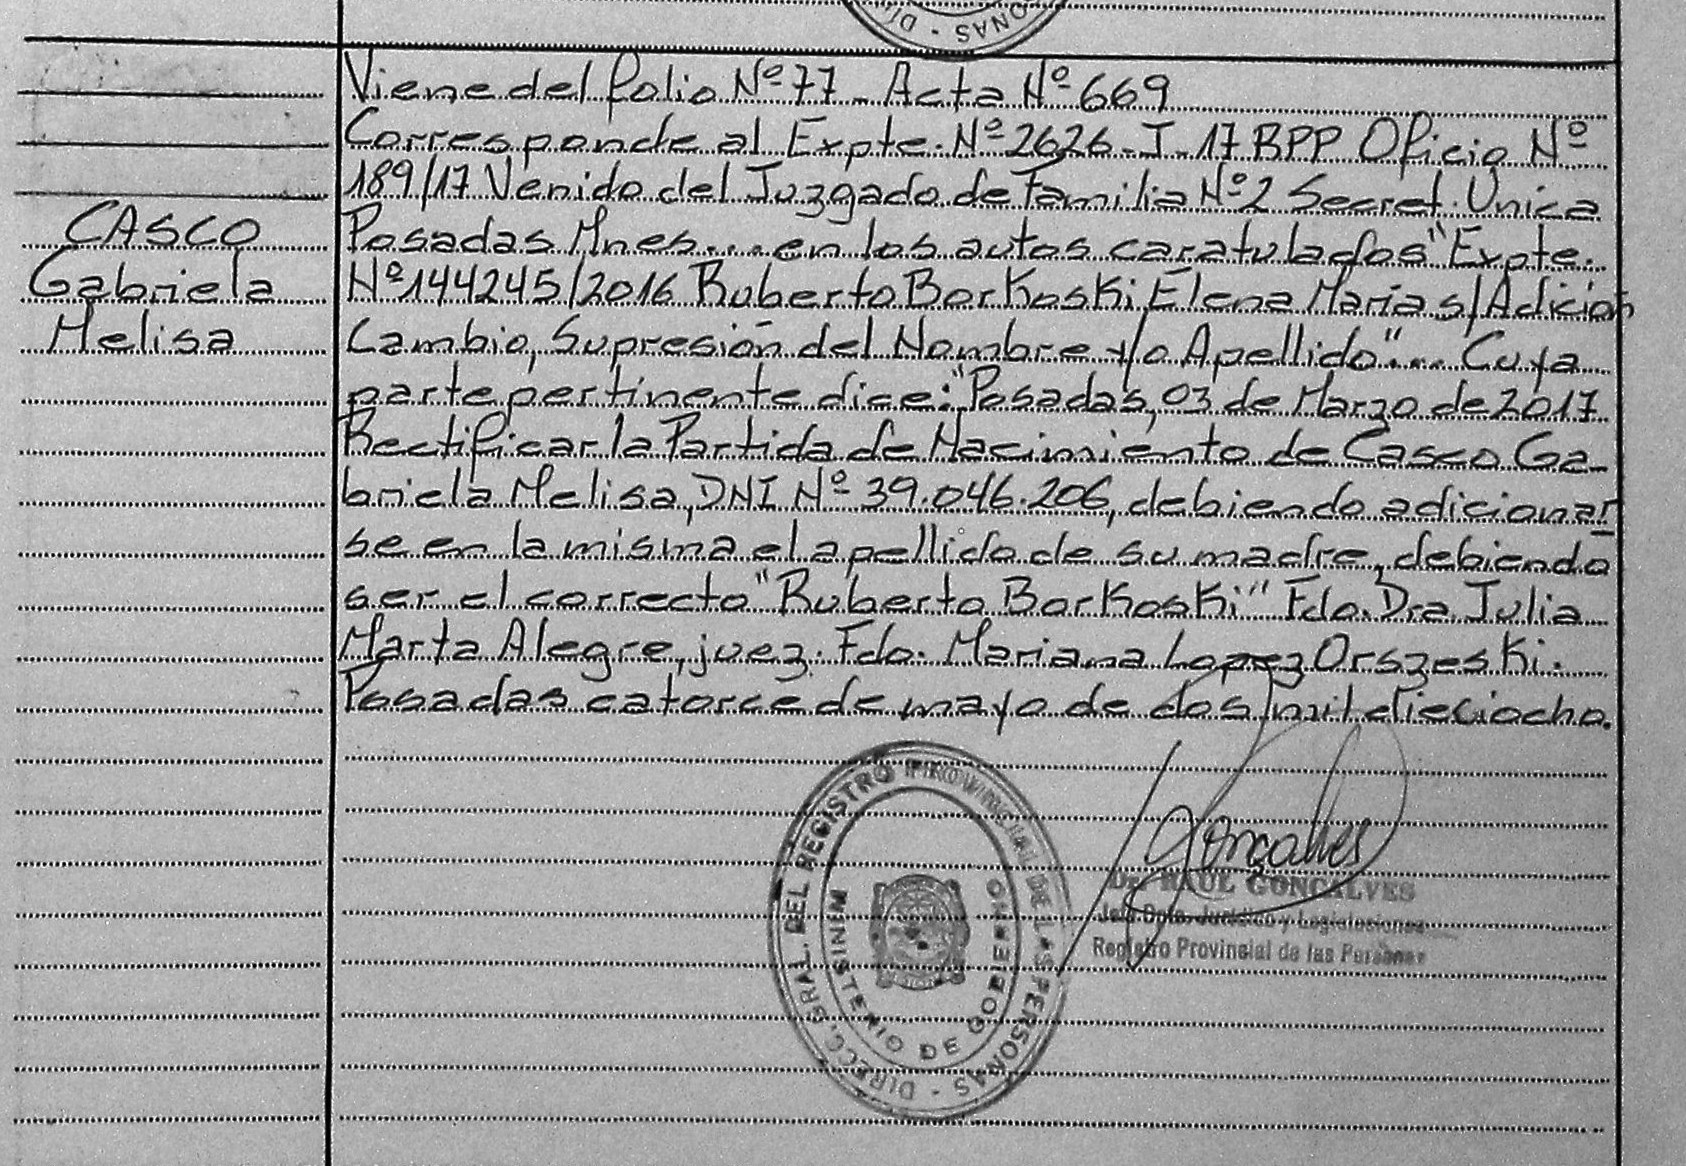 DI
ONAS -
Viene del folio Nº 77 - Acta Nº 669
Corresponde al Expte. Nº 2626-J-17 BPP Oficio Nº
189/17 Venido del Juzgado de Familia Nº2 Secret. Unica
CASCO
Posadas Mnes....en los autos caratulados "Expte.
Gabriela
Nº 144245/2016 Ruberto Borkoski Elena Maria s/Adición
Melisa
Cambio, Supresión del Nombre y/o Apellido"... Cuya
parte pertinente dice: "Posadas, 03 de Marzo de 2017
Rectificar la Partida de Nacimiento de Casco Ga-
briela Melisa, DNI Nº 39.046.206, debiendo adicionar
se en la misma el apellido de su madre, debiendo
ser el correcto "Ruberto Borkoski" Fdo. Dra. Julia
Marta Alegre, juez. Fdo. Mariana Lopez Orszeski.
Posadas catorce de mayo de dos mil dieciocho.
DIRECC. GRAL. DEL REGISTRO PROVINCIAL DE LAS PERSONAS -
MINISTERIO DE GOBIERNO
Gonçalves
Dr. RAUL GONCALVES
Jefe Dpto. Jurídico y Legislaciones
Registro Provincial de las Personas